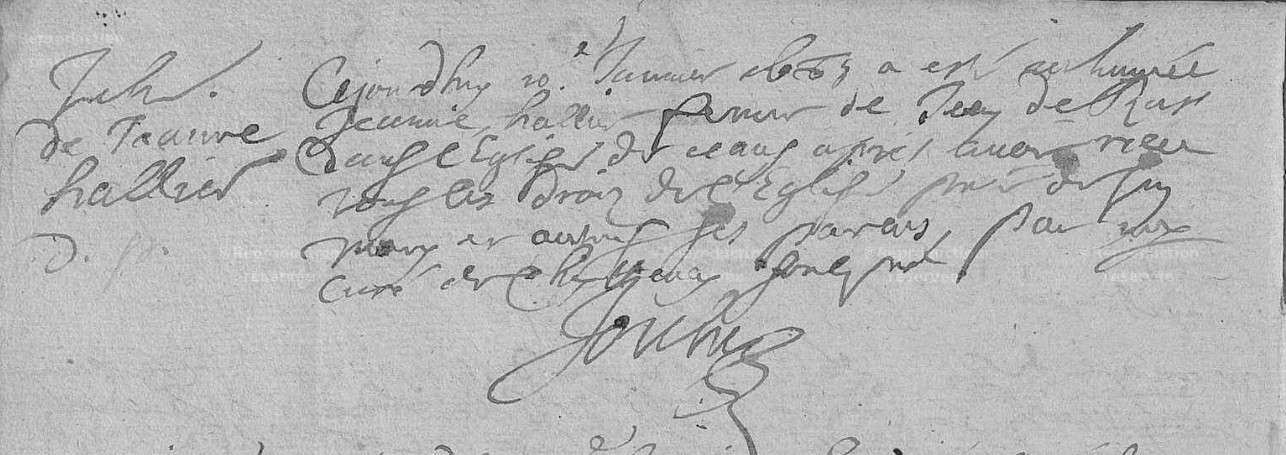 Inhu.
de Jeanne
hallier
Cejourdhuy 10.e Januier a esté inhumée
Jeanne hallier femme de Jean de
dans l'Eglise de ceans apres auoir receu
tous les droiz de l'Eglise pnt de son
mary et autres ses parens, par moy
curé de soubzsné